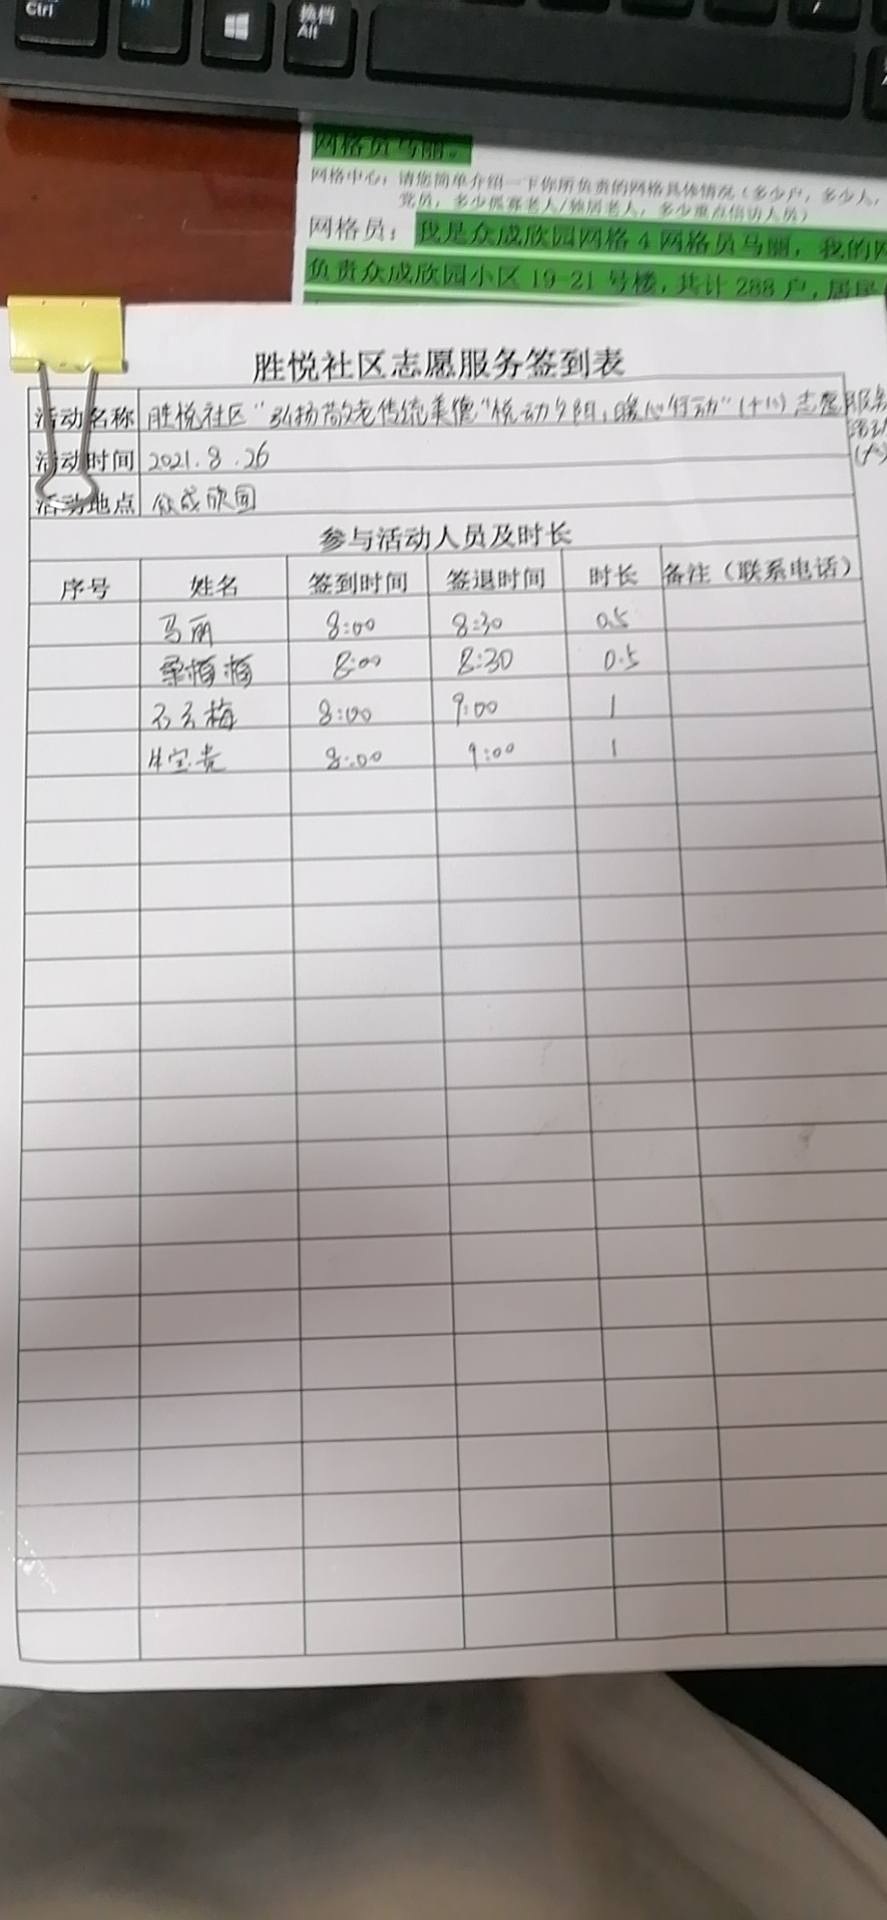 Ctrl
换档
Alt
网格员马丽。
网格中心：请您简单介绍一下你所负责的网格具体情况（多少户，多少人，
党员，多少孤寡老人/独居老人，多少重点信访人员）
网格员：我是众成欣园网格4网格员马丽，我的网
负责众成欣园小区19-21号楼，共计288户，居民
胜悦社区志愿服务签到表
活动名称 胜悦社区“弘扬敬老传统美德“悦动夕阳，暖心行动”（十八）志愿服务
活动
活动时间 2021.8.26
活动地点 众成欣园
参与活动人员及时长
序号 姓名 签到时间 签退时间 时长 备注（联系电话）
马丽 8:00 8:30 0.5
8:00 8:30 0.5
石云梅 8:00 9:00 1
牛宝贵 8:00 9:00 1